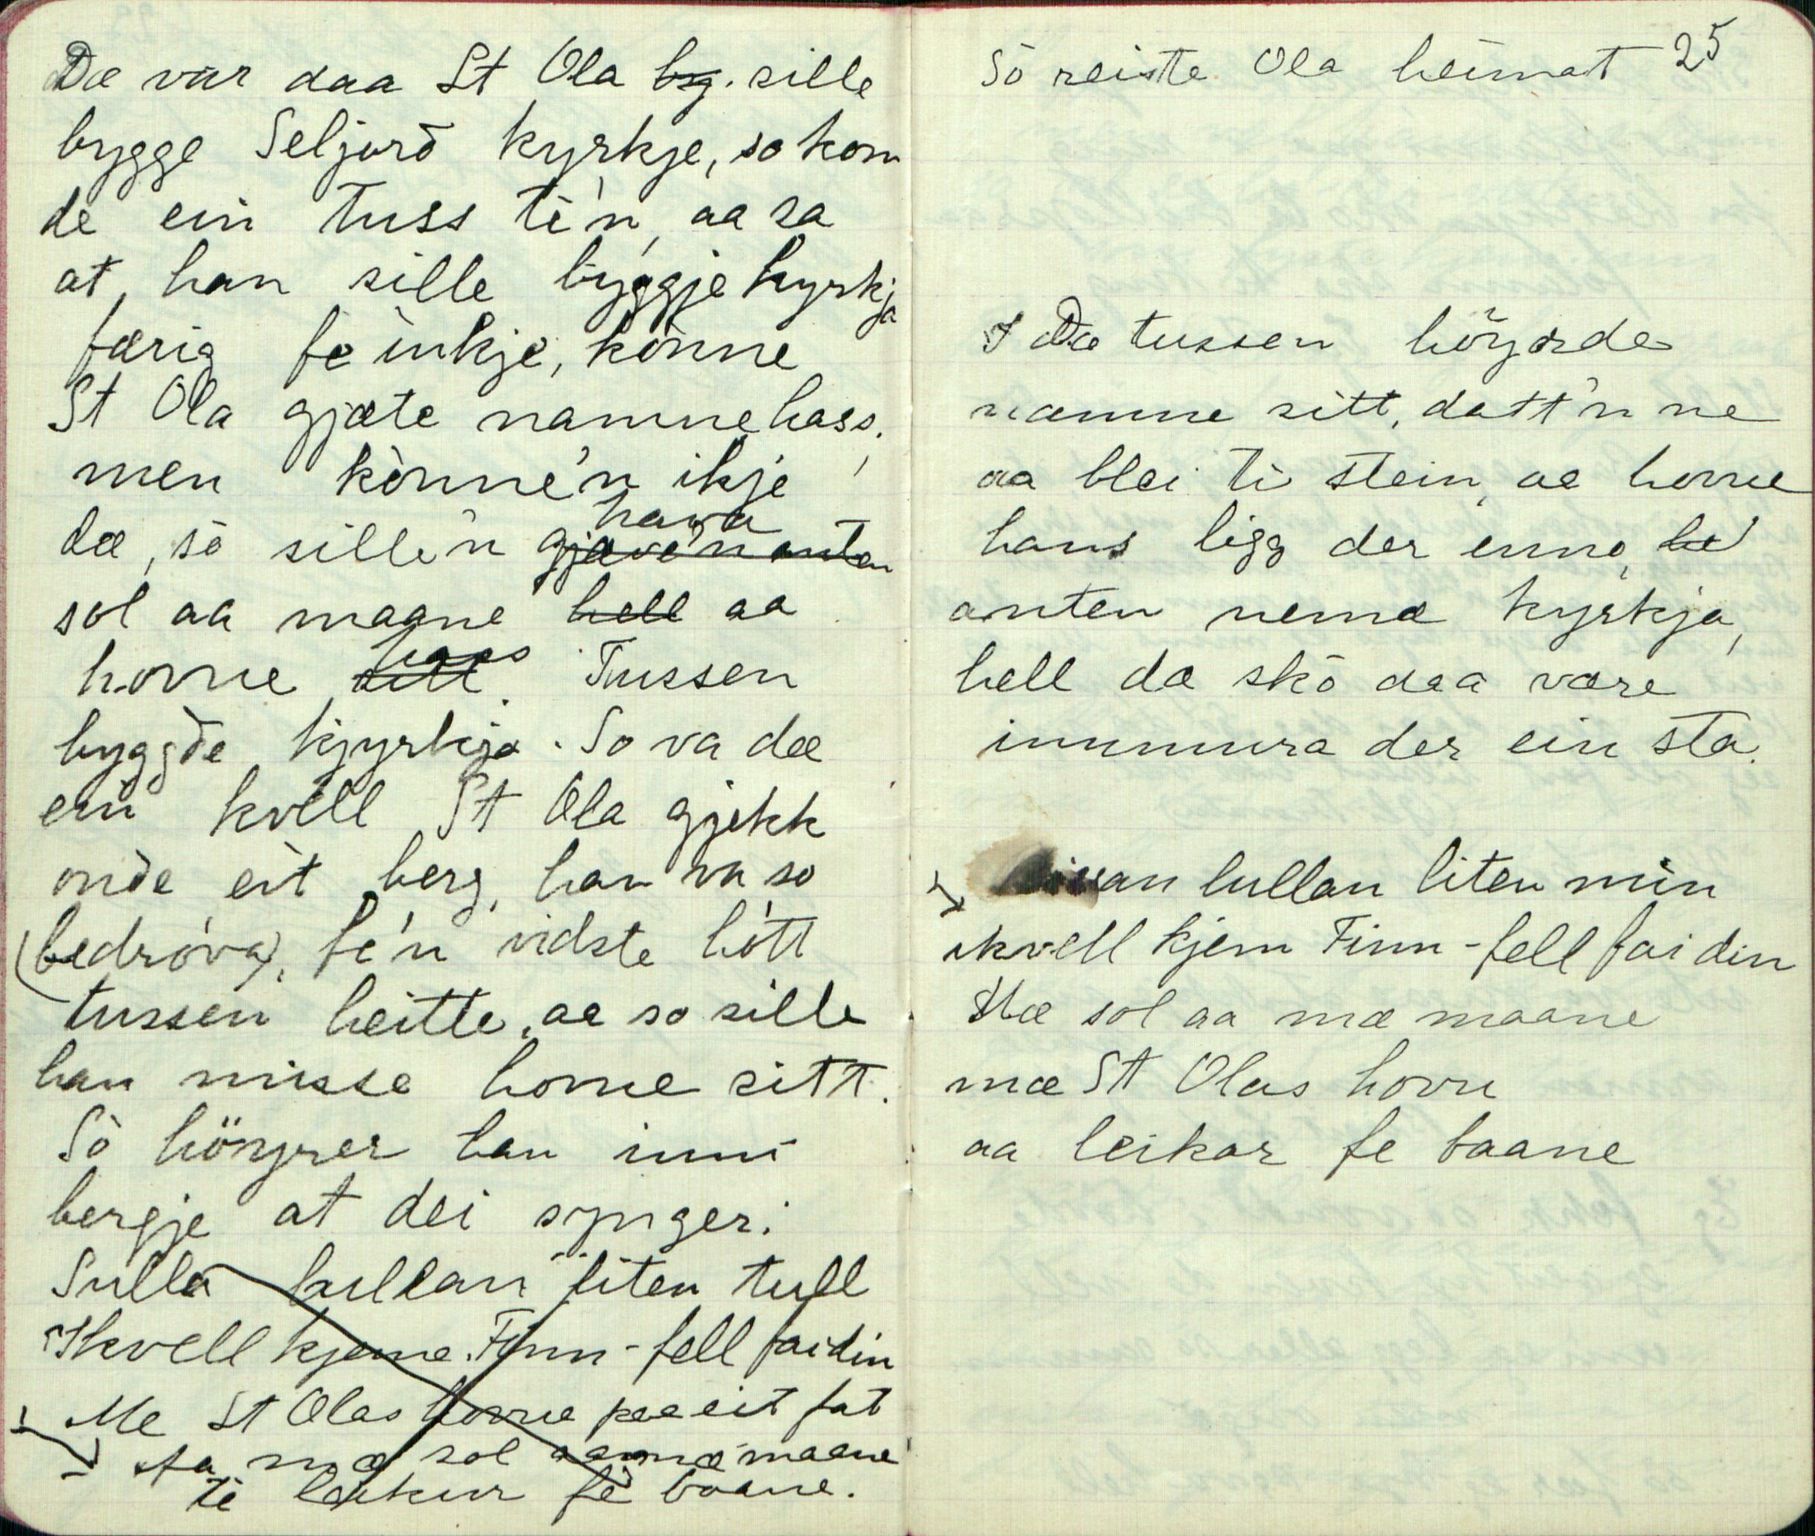 Dæ var daa St Ola byg. sille
bygge Seljord kyrkje, so kom
de ein tuss te'n, aa sa
at han sille byggje kyrkja
færig fe inkje, könne
St Ola gjæte namne hass,
men könne'n ikje
dæ, sö sille'n gjæve'n anten hava
sol aa maane hell aa
hovue sitt hass. Tussen
byggde kjyrkja. So va dæ
ein kvell St Ola gjekk
onde eit berg, han va so
(bedröva), fe'n vidste hött
tussen heitte, aa so sille
han misse hovue sitt.
Sö höyrer han inni
bergje at dei synger:
Sulla lullan liten tull
Ikvell kjeme Finn-fell fai din
Me St Olas hovue paa eit fat
aa mæ sol aa mæ maane
te leikur fe baane.
25
Sö reiste Ola heimat
Da tussen höyrde
namne sitt, datt'n ne
aa blei ti stein, aa hovue
hans ligg der enno, he
anten nemæ kyrkja,
hell dæ skö daa være
innmura der ein sta.
lullan liten min
ikvell kjem Finn-fell fai din
Mæ sol aa mæ maane
mæ St Olas hovu
aa leikar fe baane